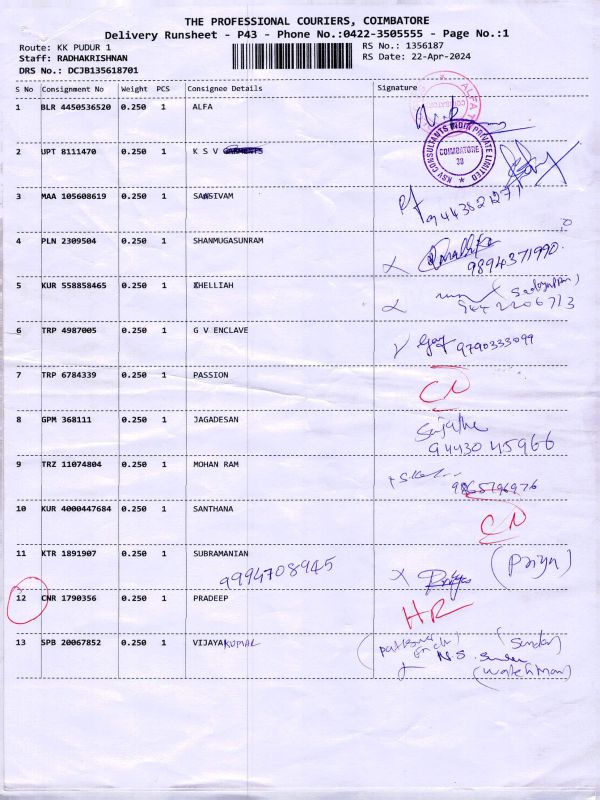 THE PROFESSIONAL COURIERS, COIMBATORE
Delivery Runsheet - P43 - Phone No.:0422-3505555 - Page No.:1
Route: KK PUDUR 1 RS No.: 1356187
Staff: RADHAKRISHNAN RS Date: 22-Apr-2024
DRS No.: DCJB135618701
S No Consignment No Weight PCS Consignee Details Signature
1 BLR 4450536520 0.250 1 ALFA
2 UPT 8111470 0.250 1 K S V
KSV CONSULTANTS INDIA PRIVATE LIMITED
COIMBATORE
3 MAA 105608619 0.250 1 SAASIVAM
9443821271
4 PLN 2309504 0.250 1 SHANMUGASUNRAM
9894371990
5 KUR 558858465 0.250 1 CHELLIAH
6 TRP 4987005 0.250 1 G V ENCLAVE
9790333099
7 TRP 6784339 0.250 1 PASSION CN
8 GPM 368111 0.250 1 JAGADESAN Sujatha
9443045966
9 TRZ 11074804 0.250 1 MOHAN RAM
10 KUR 4000447684 0.250 1 SANTHANA CN
11 KTR 1891907 0.250 1 SUBRAMANIAN (Priya)
9994708945
12 CNR 1790356 0.250 1 PRADEEP HR
13 SPB 20067852 0.250 1 VIJAYAKUMAR (Sundar)
N.S.
(watchman)